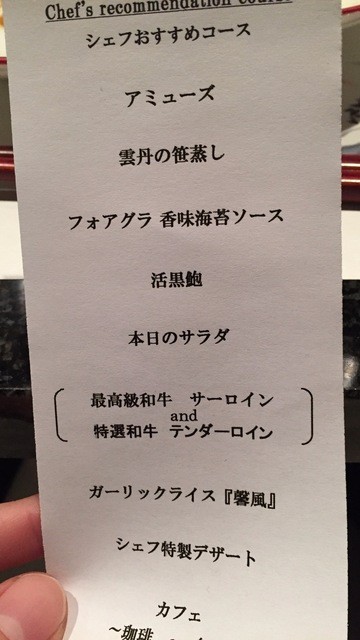 Chef's recommendation course
シェフおすすめコース
アミューズ
雲丹の笹蒸し
フォアグラ 香味海苔ソース
活黒鮑
本日のサラダ
最高級和牛 サーロイン
and
特選和牛 テンダーロイン
ガーリックライス『馨風』
シェフ特製デザート
カフェ
～珈琲